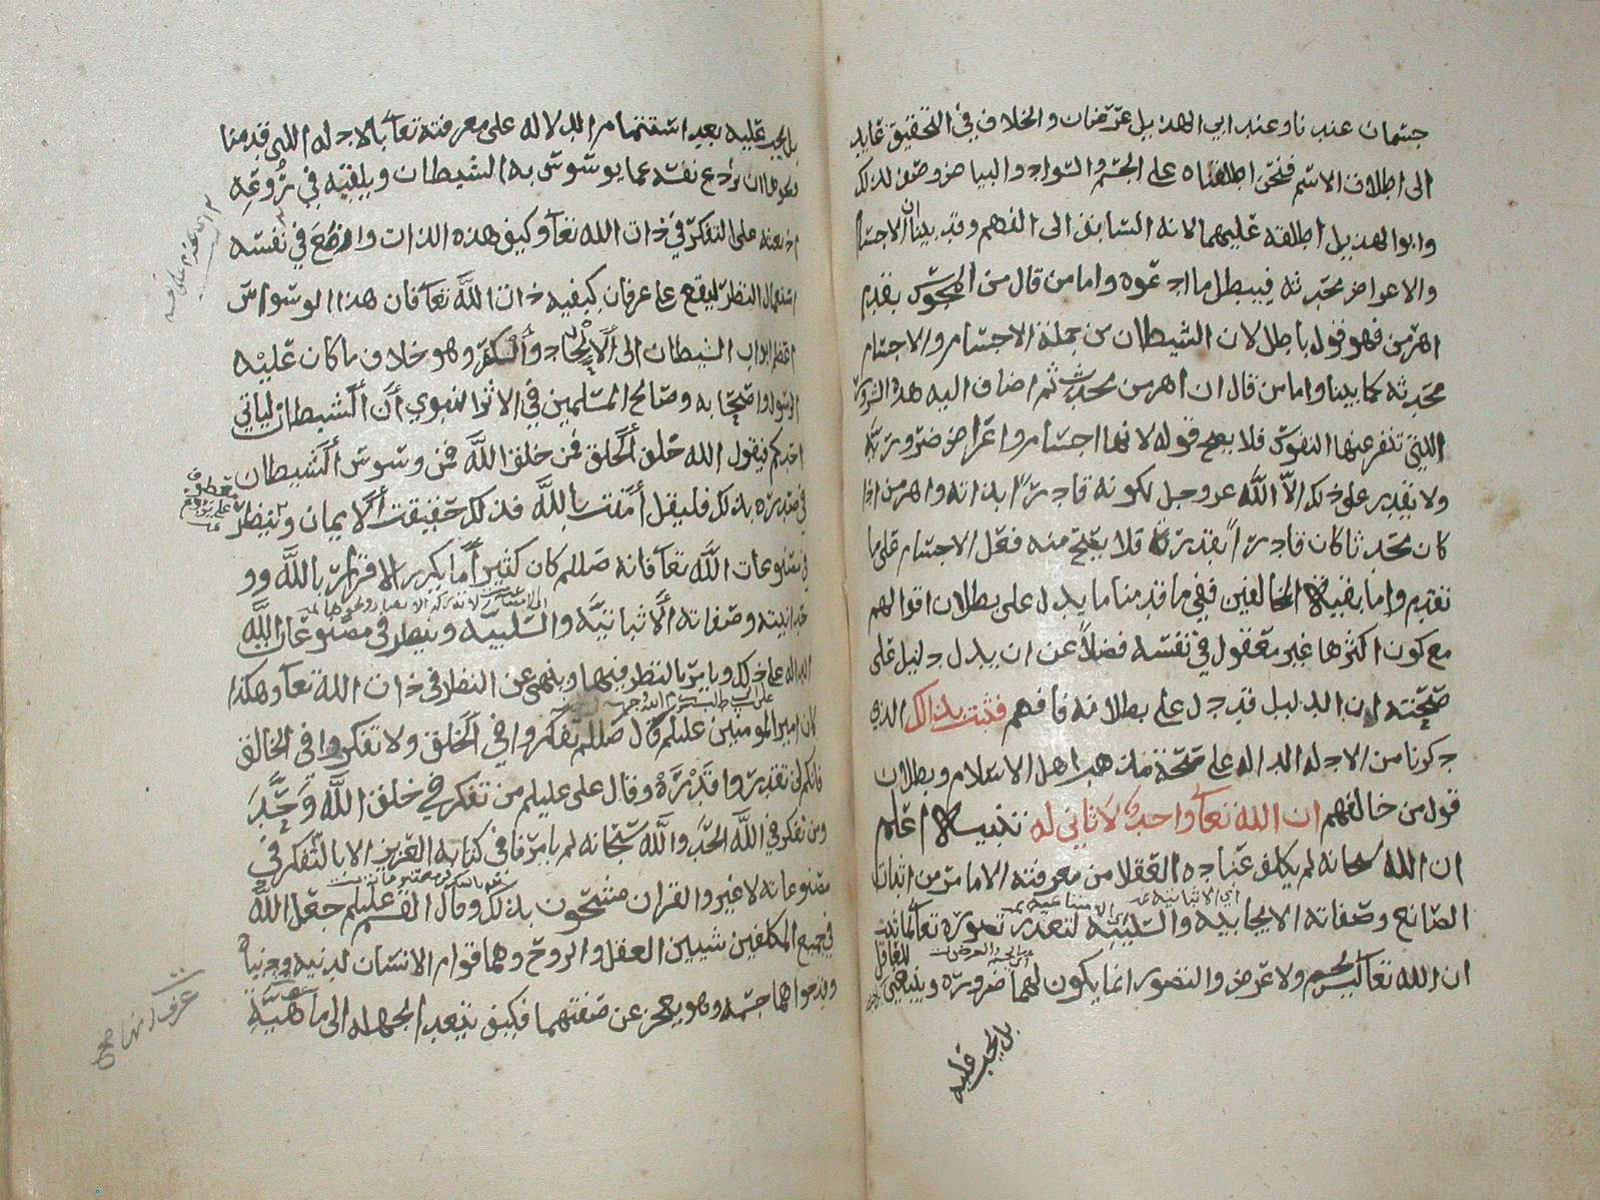 جسمان عندنا وعند ابي الهذيل عرضان والخلاف في التحقيق عايد
الى اطلاق الاسم فنحن اطلقناه على الجسم والسواد والبياض وصف لذلك
وابو الهذيل اطلقه عليهما لانه السابق الى الفهم وقد بينا ان الاجسام
والاعراض محدثه فيبطل ما ادعوه واما من قال من المجوس بقدم
اهرمن فهو قول باطل لان الشيطان من جملة الاجسام والاجسام
محدثه كما بينا واما من قال ان اهرمن محدث ثم اضاف اليه هذه الشرور
اللتي تنفر عنها النفوس فلا يصح قوله لانها اجسام واعراض ضروريه
ولا يقدر على ذلك الا الله عز وجل لكونه قادرا بذاته واهرمن اذا
كان محدثا كان قادرا بقدرة فلا يصح منه فعل الاجسام على ما
تقدم واما بقية المخالفين ففي ما قدمنا ما يدل على بطلان اقوالهم
مع كون اكثرها غير معقول في نفسه فضلا عن ان يدل دليل على
صحته اذ الدليل قد دل على بطلانه فافهم فثبت بذلك الذي
ذكرنا من الادله الداله على صحة مذهب اهل الاسلام وبطلان
قول من خالفهم ان الله تعالى واحد لا ثاني له تنبيه اعلم
ان الله سبحانه لم يكلف عباده العقلا من معرفته الا ما من اثبات
الصانع وصفاته الايجابيه والسلبيه لتعذر تصوره تعالى
ان الله تعالى ليس بجسم ولا عرض والتصور انما يكون لهما ضروره وينبغي للعاقل
بل يجب عليه
بل يجب عليه بعد استتمام الدلاله على معرفته تعالى بالادله اللتي قدمنا
ان يردع نفسه عما يوسوس به الشيطان ويلقيه في روعه
على التفكر في ذات الله تعالى وكيف هذه الذات واوضع في نفسه
استعمال النظر ليقع على عرفان كيفيه ذات الله تعالى فان هذا الوسواس
اعظم ابواب الشيطان الى الالحاد والكفر وهو خلاف ما كان عليه
الرسول واصحابه وصالح المسلمين في الاثر النبوي ان الشيطان لياتي
احدكم فيقول الله خلق الخلق فمن خلق الله فمن وسوس الشيطان
في صدره بذلك فليقل امنت بالله فذلك حقيقت الايمان وينظر
في مصنوعات الله تعالى فانه صللم كان كثيرا ما يكرر الاقرار بالله وو
حدانيته وصفاته الاثباتيه والسلبيه وينظر في مصنوعات الله
الداله على ذلك ويامر بالنظر فيها وينهى عن النظر في ذات الله تعالى وهكذا
كان امير المومنين عليلم قال صللم تفكروا في الخلق ولا تفكروا في الخالق
فانكم لن تقدروا قدره وقال علي عليلم من تفكر في خلق الله وحد
ومن تفكر في الله الحد والله سبحانه لم يامرنا في كتابه العزيز الا بالتفكر في
مصنوعاته لا غير والقران مشحون بذلك وقال القسم عليلم جعل الله
في جميع المكلفين شيين العقل والروح وهما قوام الانسان لدينه ودنياه
وقد حواهما جسمه وهو يعجز عن صفتهما فكيف يتعدا بجهله الى ماهية